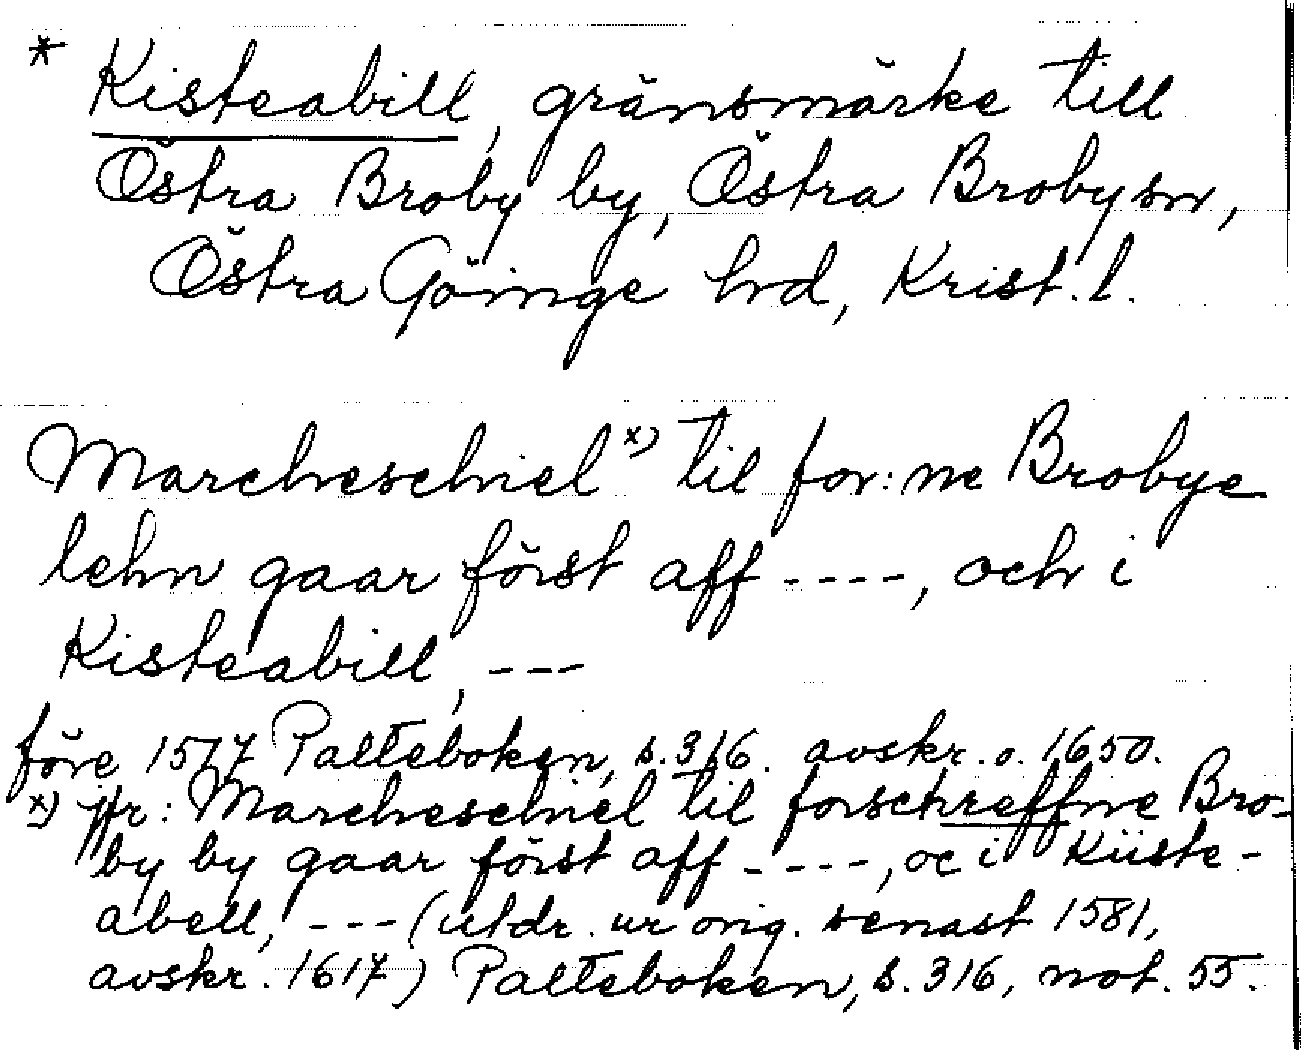 * Kisteabill, gränsmärke till
Östra Broby by, Östra Broby sn,
Östra Göinge hrd, Krist. l.
Marcheschiel x) til for:ne Brobye
lehn gaar först aff ----, och i
Kisteabill, ---
före 1577 Palteboken, s. 316. avskr. o. 1650.
x) jfr: Marcheschiel til forschreffne Bro-
by by gaar först aff ----, oc i Küste-
abell, --- (utdr. ur orig. senast 1581,
avskr. 1617) Palteboken, s. 316, not. 55.